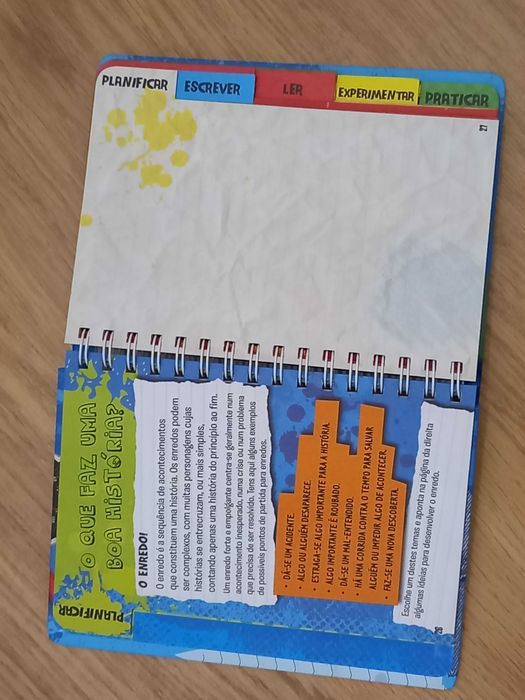 PLANIFICAR
O QUE FAZ UMA
BOA HISTÓRIA?
O ENREDO!
O enredo é a sequência de acontecimentos
que constituem uma história. Os enredos podem
ser complexos, com muitas personagens cujas
histórias se entrecruzam, ou mais simples,
contando apenas uma história do princípio ao fim.
Um enredo forte e empolgante centra-se geralmente num
acontecimento inesperado, numa crise ou num problema
que precisa de ser resolvido. Tens aqui alguns exemplos
de possíveis pontos de partida para enredos.
• DÁ-SE UM ACIDENTE.
• ALGO OU ALGUÉM DESAPARECE.
• ESTRAGA-SE ALGO IMPORTANTE PARA A HISTÓRIA.
• ALGO IMPORTANTE É ROUBADO.
• DÁ-SE UM MAL-ENTENDIDO.
• HÁ UMA CORRIDA CONTRA O TEMPO PARA SALVAR
ALGUÉM OU IMPEDIR ALGO DE ACONTECER.
• FAZ-SE UMA NOVA DESCOBERTA.
Escolhe um destes temas e aponta na página da direita
algumas ideias para desenvolver o enredo.
26
PLANIFICAR
ESCREVER
LER
EXPERIMENTAR
PRATICAR
27